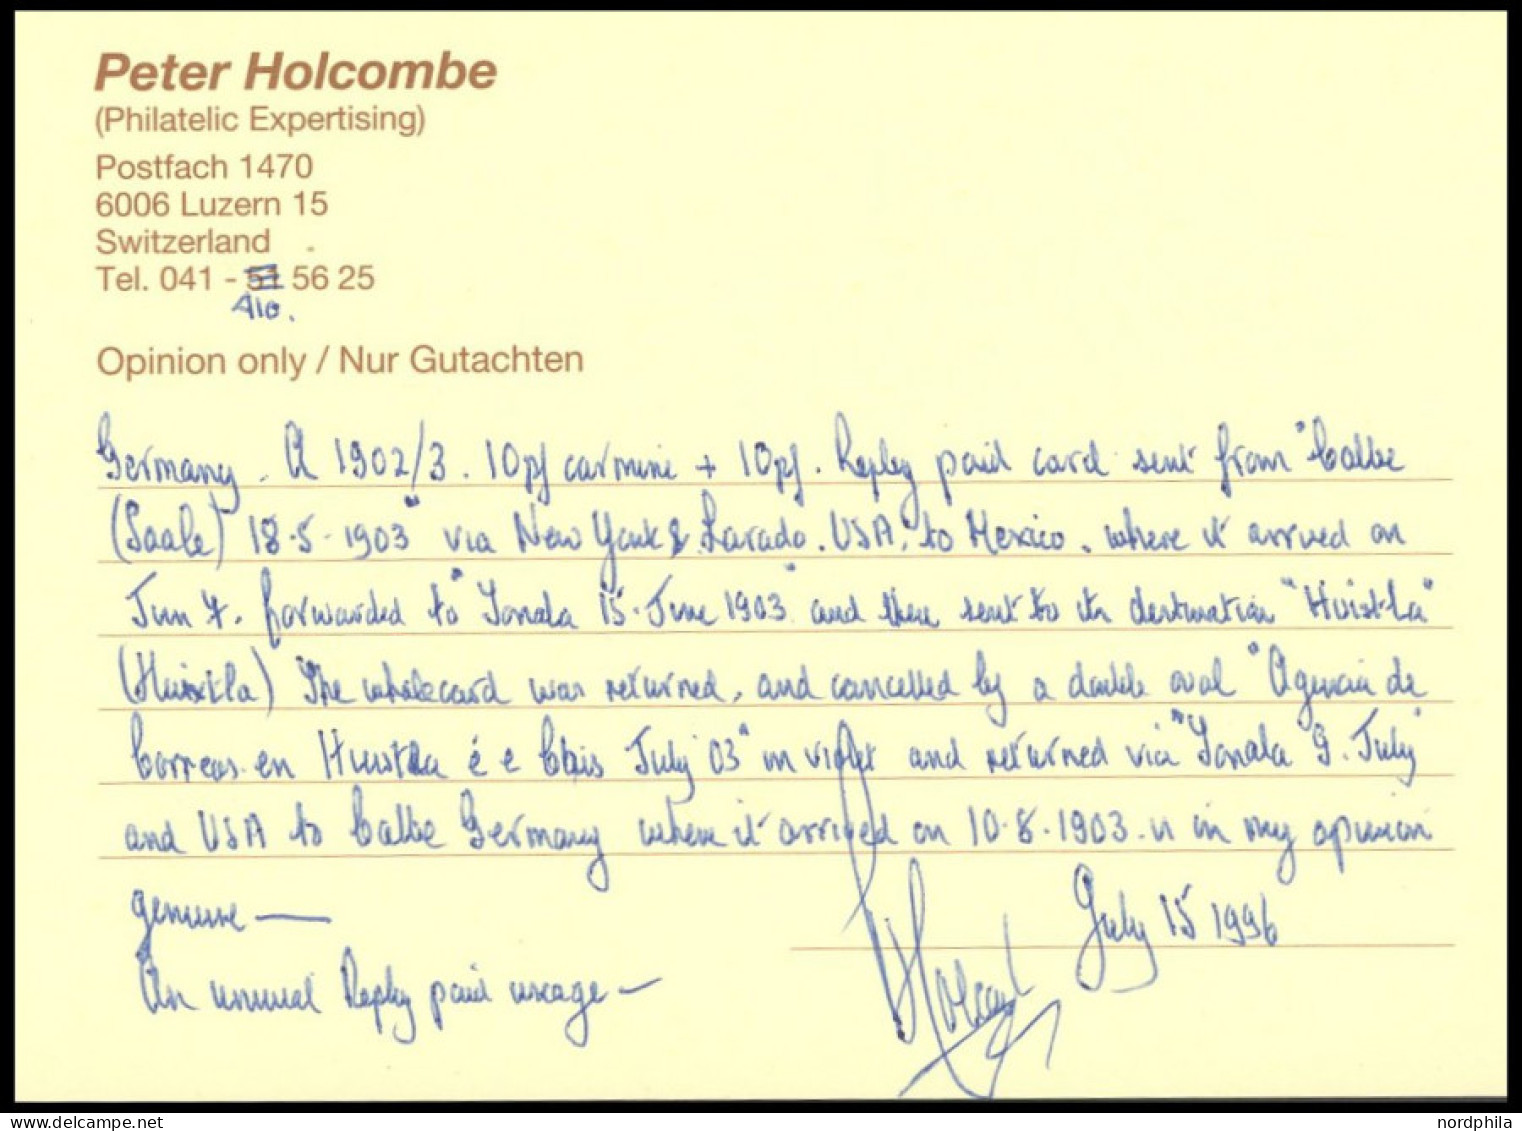 Peter Holcombe
(Philatelic Expertising)
Postfach 1470
6006 Luzern 15
Switzerland
Tel. 041 - 51 56 25
410.
Opinion only / Nur Gutachten
Germany. A 1902/3. 10pf carmine + 10pf. Reply paid card sent from "Calbe
(Saale) 18-5-1903" via New York & Larado. USA, to Mexico, where it arrived on
Jun 7. forwarded to "Tonala 15. June 1903" and then sent to its destination "Huistla"
(Huixtla) The whole card was returned, and cancelled by a double oval "Agencia de
Correos en Huistla é e July 03" in violet and returned via "Tonala 9. July"
and USA to Calbe Germany where it arrived on 10.8.1903. is in my opinion
genuine —
July 15 1996
An unusual Reply paid usage —
Holcombe
nordphila